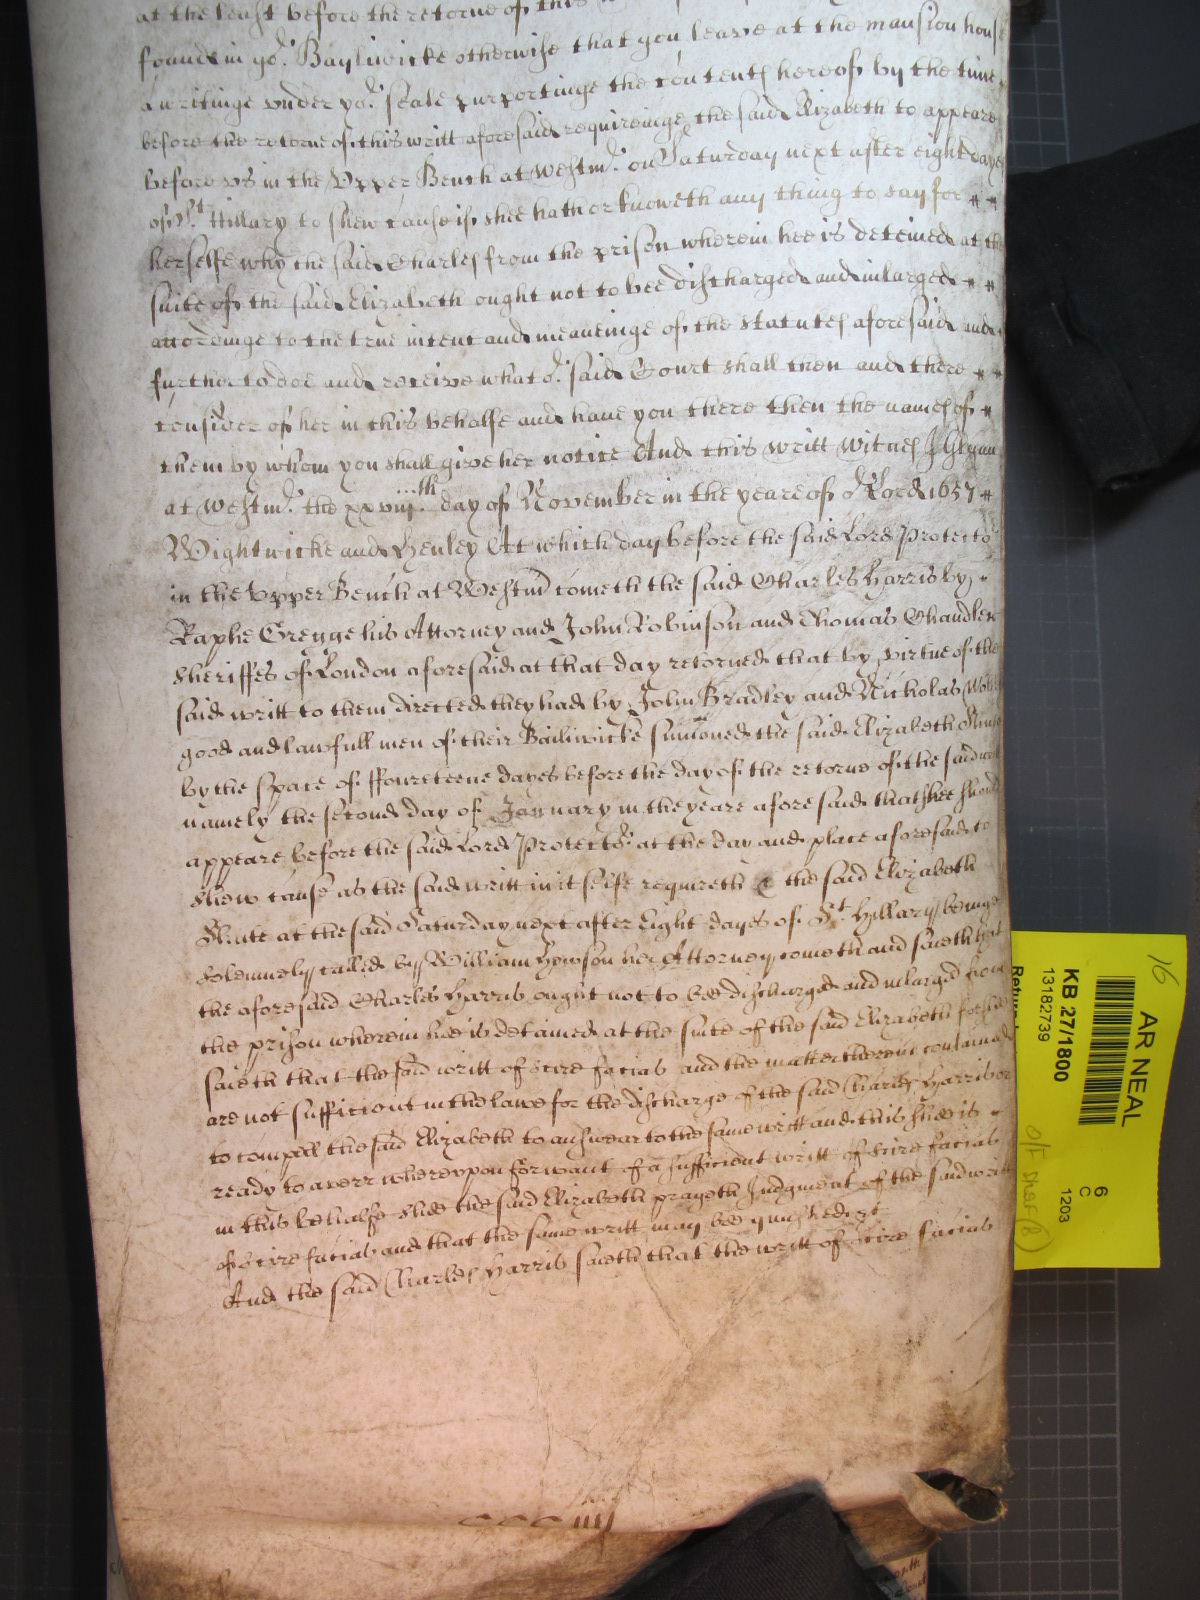 at the least before the retorne of this
found in yo.r Bayliwicke otherwise that you leave at the mansion house
a writinge under yo.r seale purportinge the contents hereof by the time
before the retorne of this writt aforesaid requireinge the said Elizabeth to appeare
before us in the Upper Bench at Westm.r on Saturday next after eight dayes
of S.t Hillary to shew cause if shee hath or knoweth any thing to say for
herselfe why the said Charles from the prison wherein hee is deteined at the
suite of the said Elizabeth ought not to bee discharged and inlarged
accordinge to the true intent and meaneinge of the Statutes aforesaid and
further to doe and receive what o.r said Court shall then and there
consider of her in this behalfe and have you there then the names of
them by whom you shall give her notice And this writt Witnes J Glynn
at Westm.r the xxviij.th day of November in the yeare of o.r Lord 1657
Wightwicke and Henley At which day before the said Lord Protecto.r
in the Upper Bench at Westm.r cometh the said Charles Harris by
Raphe Gregge his Attorney and John Robinson and Thomas Chandler
Sheriffes of London aforesaid at that day retorned that by virtue of the
said writt to them directed they had by John Bradley and Nicholas
good and lawfull men of their Bailiwicke sumoned the said Elizabeth
by the space of ffoureteene dayes before the day of the retorne of the said writt
namely the second day of January in the yeare aforesaid that shee should
appeare before the said Lord Protecto.r at the day and place aforesaid to
shew cause as the said writt in it selfe requireth & the said Elizabeth
at the said Saturday next after Eight dayes of S.t Hillary beinge
solemnely called by William Hewson her Attorney cometh and saieth that
the aforesaid Charles Harris ought not to bee discharged and inlarged from
the prison wherein hee is detained at the suite of the said Elizabeth for shee
saieth that the said writt of scire facias and the matter therein contained
are not sufficient in the lawe for the discharge of the said Charles Harris or
to compell the said Elizabeth to answear to the same writt and this shee is
ready to averr whereupon for want of a sufficient writt of scire facias
in this behalfe shee the said Elizabeth prayeth Judgment of the said writt
of scire facias and that the same writt may bee quashed &c
And the said Charles Harris saieth that the writt of scire facias
ccciiij
16
AR NEAL
KB 27/1800
13182739
6
C
1203